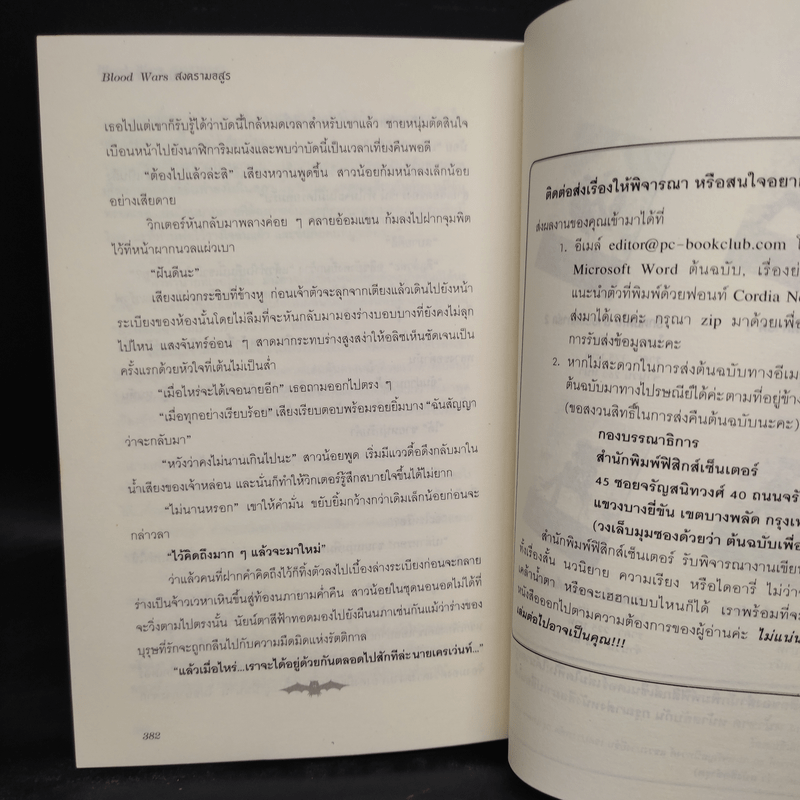 Blood Wars สงครามอสูร
เธอไปแต่เขาก็รับรู้ได้ว่าบัดนี้ใกล้หมดเวลาสำหรับเขาแล้ว ชายหนุ่มตัดสินใจ
เบือนหน้าไปยังนาฬิการิมผนังและพบว่าบัดนี้เป็นเวลาเที่ยงคืนพอดี
"ต้องไปแล้วล่ะสิ" เสียงหวานพูดขึ้น สาวน้อยก้มหน้าลงเล็กน้อย
อย่างเสียดาย
วิกเตอร์หันกลับมาพลางค่อย ๆ คลายอ้อมแขน ก้มลงไปฝากจุมพิต
ไว้ที่หน้าผากนวลแผ่วเบา
"ฝันดีนะ"
เสียงแผ่วกระซิบที่ข้างหู ก่อนเจ้าตัวจะลุกจากเตียงแล้วเดินไปยังหน้า
ระเบียงของห้องนั้นโดยไม่ลืมที่จะหันกลับมามองร่างบอบบางที่ยังคงไม่ลุก
ไปไหน แสงจันทร์อ่อน ๆ สาดมากระทบร่างสูงสง่าให้อลิซเห็นชัดเจนเป็น
ครั้งแรกด้วยหัวใจที่เต้นไม่เป็นส่ำ
"เมื่อไหร่จะได้เจอนายอีก" เธอถามออกไปตรง ๆ
"เมื่อทุกอย่างเรียบร้อย" เสียงเรียบตอบพร้อมรอยยิ้มบาง "ฉันสัญญา
ว่าจะกลับมา"
"หวังว่าคงไม่นานเกินไปนะ" สาวน้อยพูด เริ่มมีแววดื้อดึงกลับมาใน
น้ำเสียงของเจ้าหล่อน และนั่นก็ทำให้วิกเตอร์รู้สึกสบายใจขึ้นได้ไม่ยาก
"ไม่นานหรอก" เขาให้คำมั่น ขยับยิ้มกว้างกว่าเดิมเล็กน้อยก่อนจะ
กล่าวลา
"ไว้คิดถึงมาก ๆ แล้วจะมาใหม่"
ว่าแล้วคนที่ฝากคำคิดถึงไว้ก็ทิ้งตัวลงไปเบื้องล่างระเบียงก่อนจะกลาย
ร่างเป็นจ้าวเวหาเหินขึ้นสู่ท้องนภายามค่ำคืน สาวน้อยในชุดนอนอดไม่ได้ที่
จะวิ่งตามไปตรงนั้น นัยน์ตาสีฟ้าทอดมองไปยังผืนนภาเช่นกันแม้ว่าร่างของ
บุรุษที่รักจะถูกกลืนไปกับความมืดมิดแห่งรัตติกาล
"แล้วเมื่อไหร่...เราจะได้อยู่ด้วยกันตลอดไปสักทีล่ะ นายเครเว่นท์..."
382
ติดต่อส่งเรื่องให้พิจารณา หรือสนใจอยา
ส่งผลงานของคุณเข้ามาได้ที่
1. อีเมล์ editor@pc-bookclub.com
Microsoft Word ต้นฉบับ, เรื่องย่
แนะนำตัวที่พิมพ์ด้วยฟอนท์ Cordia N
ส่งมาได้เลยค่ะ กรุณา zip มาด้วยเพื่อ
การรับส่งข้อมูลนะคะ
2. หากไม่สะดวกในการส่งต้นฉบับทางอีเม
ต้นฉบับมาทางไปรษณีย์ได้ค่ะตามที่อยู่ข้าง
(ขอสงวนสิทธิ์ในการส่งคืนต้นฉบับนะคะ)
กองบรรณาธิการ
สำนักพิมพ์ฟิสิกส์เซ็นเตอร์
45 ซอยจรัญสนิทวงศ์ 40 ถนนจรั
แขวงบางยี่ขัน เขตบางพลัด กรุงเท
(วงเล็บมุมซองด้วยว่า ต้นฉบับเพื่อ
สำนักพิมพ์ฟิสิกส์เซ็นเตอร์ รับพิจารณางานเขียน
ทั้งเรื่องสั้น นวนิยาย ความเรียง หรือไดอารี่ ไม่ว่า
เคล้าน้ำตา หรือจะเฮฮาแบบไหนก็ได้ เราพร้อมที่จะ
หนังสือออกไปตามความต้องการของผู้อ่านค่ะ ไม่แน่น
เล่มต่อไปอาจเป็นคุณ!!!